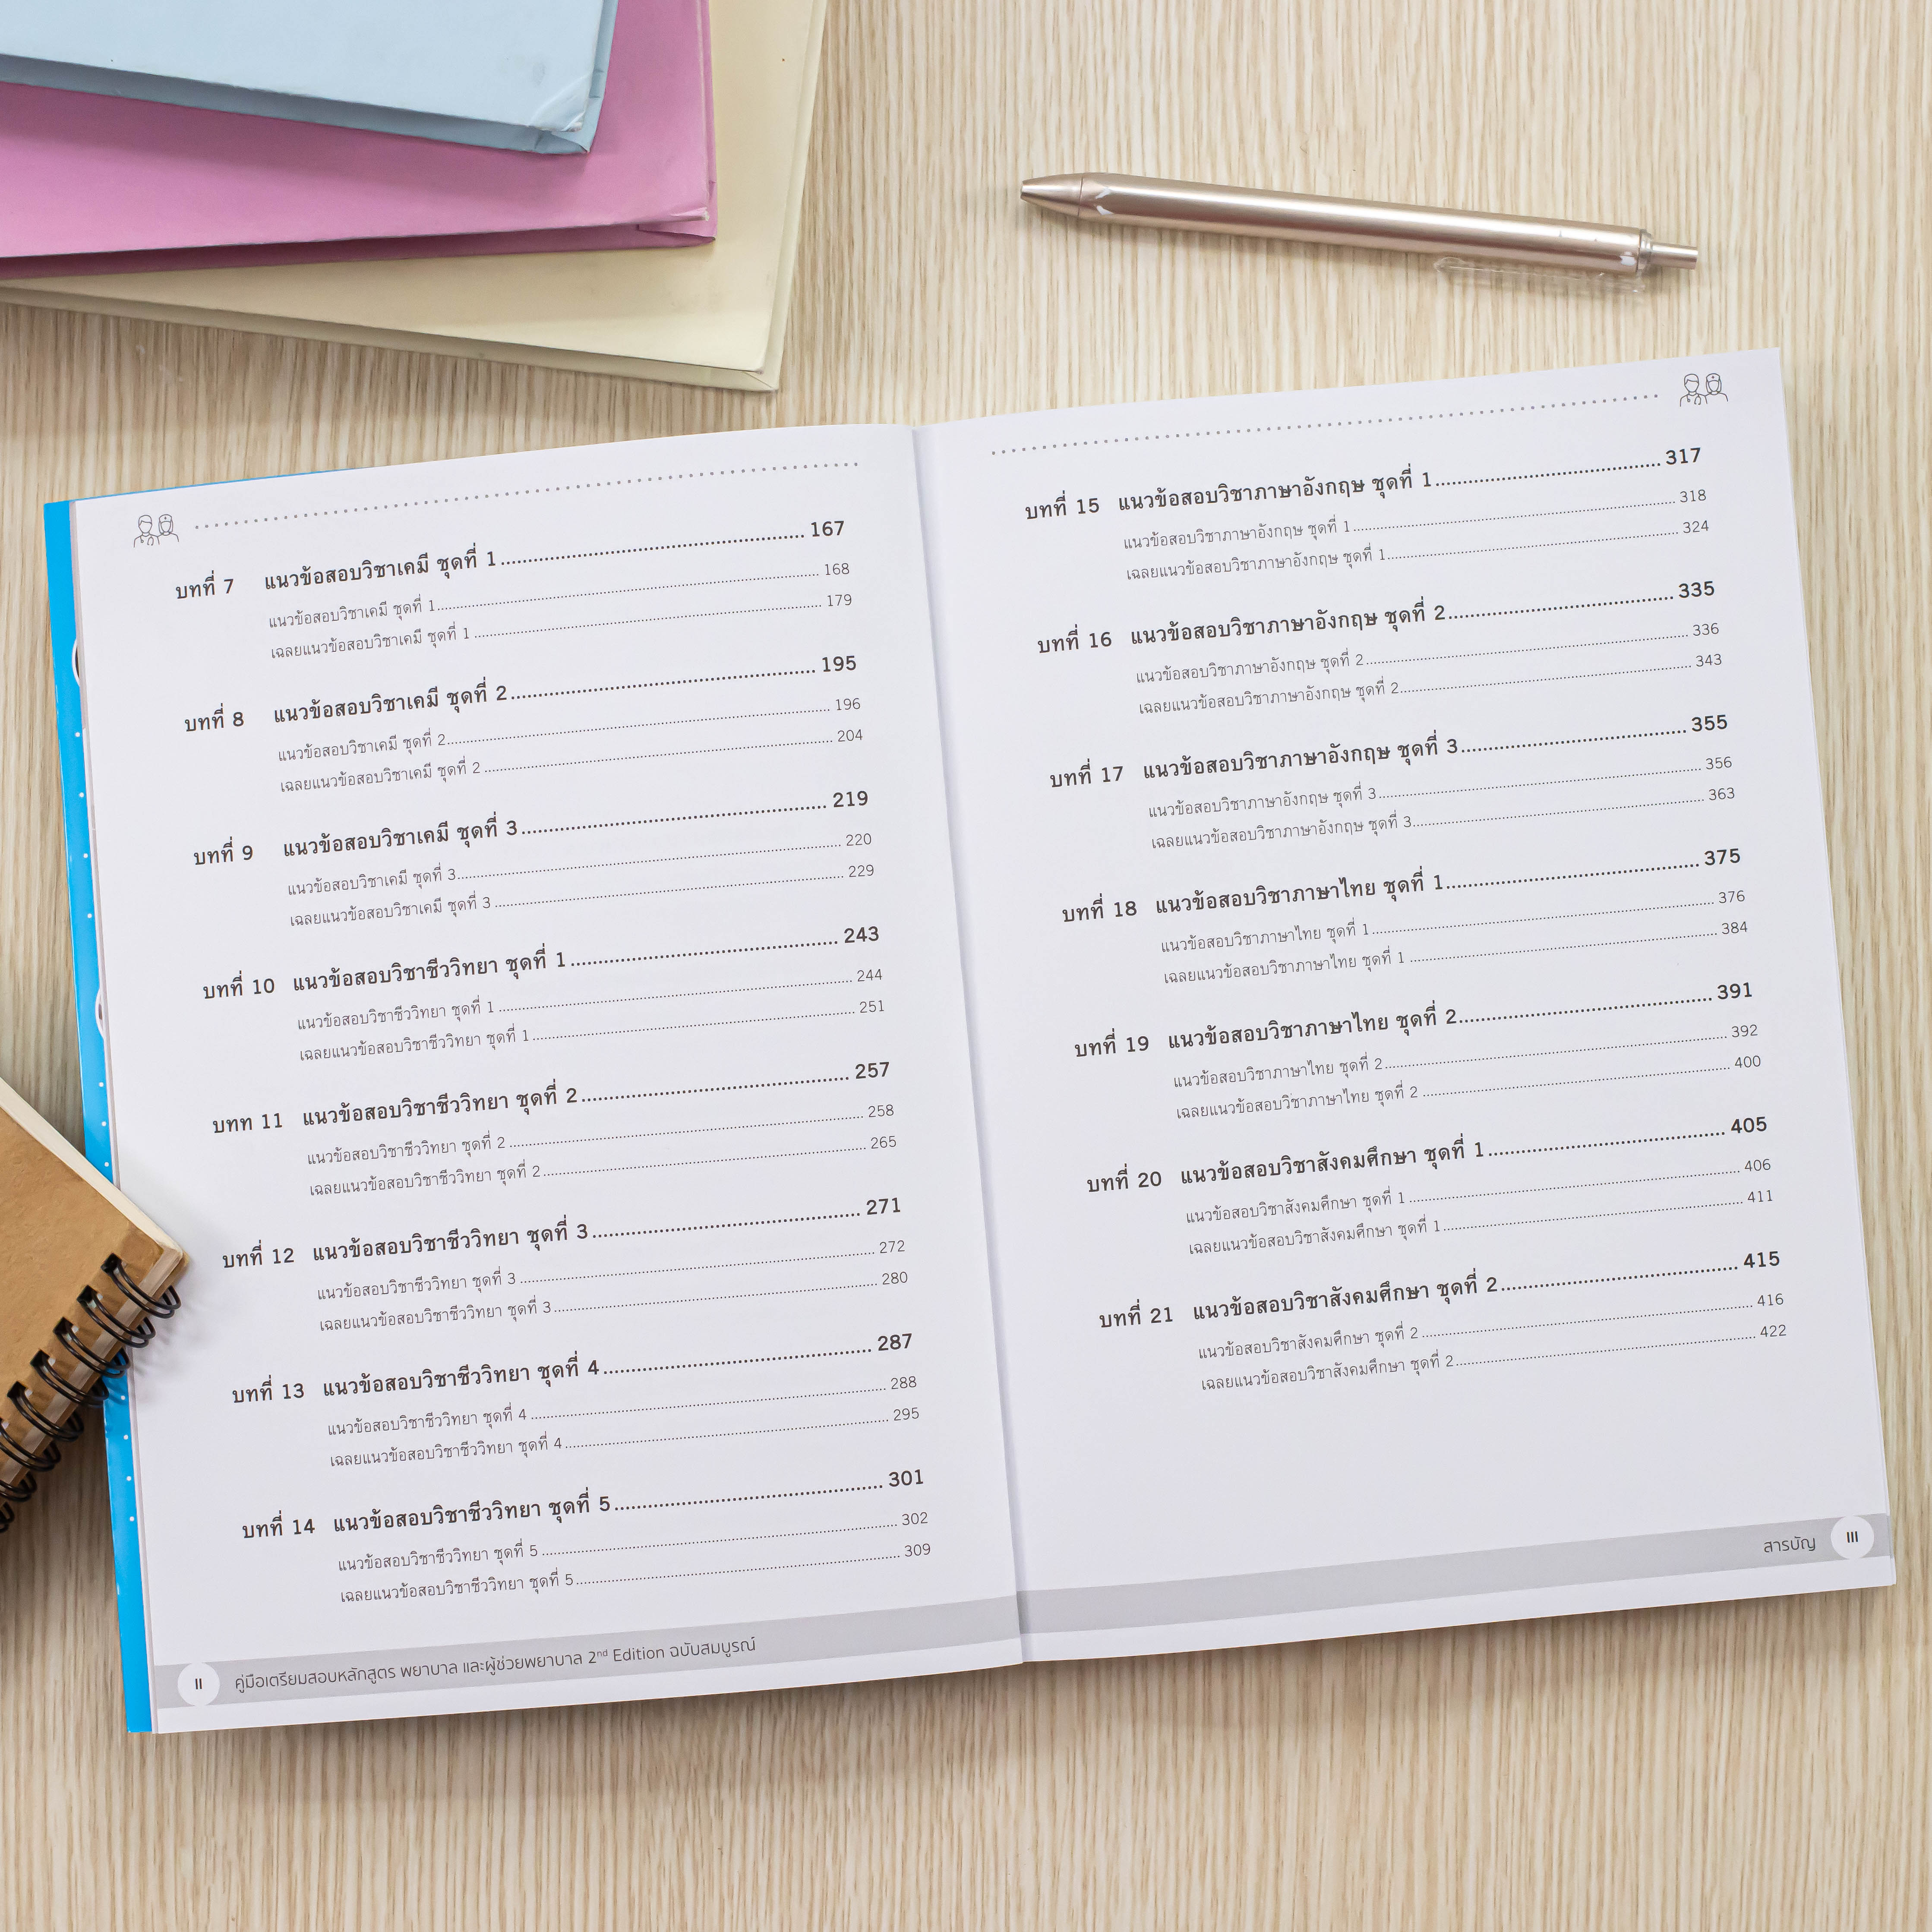 บทที่ 7 แนวข้อสอบวิชาเคมี ชุดที่ 1 167
แนวข้อสอบวิชาเคมี ชุดที่ 1 168
เฉลยแนวข้อสอบวิชาเคมี ชุดที่ 1 179
บทที่ 8 แนวข้อสอบวิชาเคมี ชุดที่ 2 195
แนวข้อสอบวิชาเคมี ชุดที่ 2 196
เฉลยแนวข้อสอบวิชาเคมี ชุดที่ 2 204
บทที่ 9 แนวข้อสอบวิชาเคมี ชุดที่ 3 219
แนวข้อสอบวิชาเคมี ชุดที่ 3 220
เฉลยแนวข้อสอบวิชาเคมี ชุดที่ 3 229
บทที่ 10 แนวข้อสอบวิชาชีววิทยา ชุดที่ 1 243
แนวข้อสอบวิชาชีววิทยา ชุดที่ 1 244
เฉลยแนวข้อสอบวิชาชีววิทยา ชุดที่ 1 251
บทท 11 แนวข้อสอบวิชาชีววิทยา ชุดที่ 2 257
แนวข้อสอบวิชาชีววิทยา ชุดที่ 2 258
เฉลยแนวข้อสอบวิชาชีววิทยา ชุดที่ 2 265
บทที่ 12 แนวข้อสอบวิชาชีววิทยา ชุดที่ 3 271
แนวข้อสอบวิชาชีววิทยา ชุดที่ 3 272
เฉลยแนวข้อสอบวิชาชีววิทยา ชุดที่ 3 280
บทที่ 13 แนวข้อสอบวิชาชีววิทยา ชุดที่ 4 287
แนวข้อสอบวิชาชีววิทยา ชุดที่ 4 288
เฉลยแนวข้อสอบวิชาชีววิทยา ชุดที่ 4 295
บทที่ 14 แนวข้อสอบวิชาชีววิทยา ชุดที่ 5 301
แนวข้อสอบวิชาชีววิทยา ชุดที่ 5 302
เฉลยแนวข้อสอบวิชาชีววิทยา ชุดที่ 5 309
II คู่มือเตรียมสอบหลักสูตร พยาบาล และผู้ช่วยพยาบาล 2nd Edition ฉบับสมบูรณ์
บทที่ 15 แนวข้อสอบวิชาภาษาอังกฤษ ชุดที่ 1 317
แนวข้อสอบวิชาภาษาอังกฤษ ชุดที่ 1 318
เฉลยแนวข้อสอบวิชาภาษาอังกฤษ ชุดที่ 1 324
บทที่ 16 แนวข้อสอบวิชาภาษาอังกฤษ ชุดที่ 2 335
แนวข้อสอบวิชาภาษาอังกฤษ ชุดที่ 2 336
เฉลยแนวข้อสอบวิชาภาษาอังกฤษ ชุดที่ 2 343
บทที่ 17 แนวข้อสอบวิชาภาษาอังกฤษ ชุดที่ 3 355
แนวข้อสอบวิชาภาษาอังกฤษ ชุดที่ 3 356
เฉลยแนวข้อสอบวิชาภาษาอังกฤษ ชุดที่ 3 363
บทที่ 18 แนวข้อสอบวิชาภาษาไทย ชุดที่ 1 375
แนวข้อสอบวิชาภาษาไทย ชุดที่ 1 376
เฉลยแนวข้อสอบวิชาภาษาไทย ชุดที่ 1 384
บทที่ 19 แนวข้อสอบวิชาภาษาไทย ชุดที่ 2 391
แนวข้อสอบวิชาภาษาไทย ชุดที่ 2 392
เฉลยแนวข้อสอบวิชาภาษาไทย ชุดที่ 2 400
บทที่ 20 แนวข้อสอบวิชาสังคมศึกษา ชุดที่ 1 405
แนวข้อสอบวิชาสังคมศึกษา ชุดที่ 1 406
เฉลยแนวข้อสอบวิชาสังคมศึกษา ชุดที่ 1 411
บทที่ 21 แนวข้อสอบวิชาสังคมศึกษา ชุดที่ 2 415
แนวข้อสอบวิชาสังคมศึกษา ชุดที่ 2 416
เฉลยแนวข้อสอบวิชาสังคมศึกษา ชุดที่ 2 422
สารบัญ III